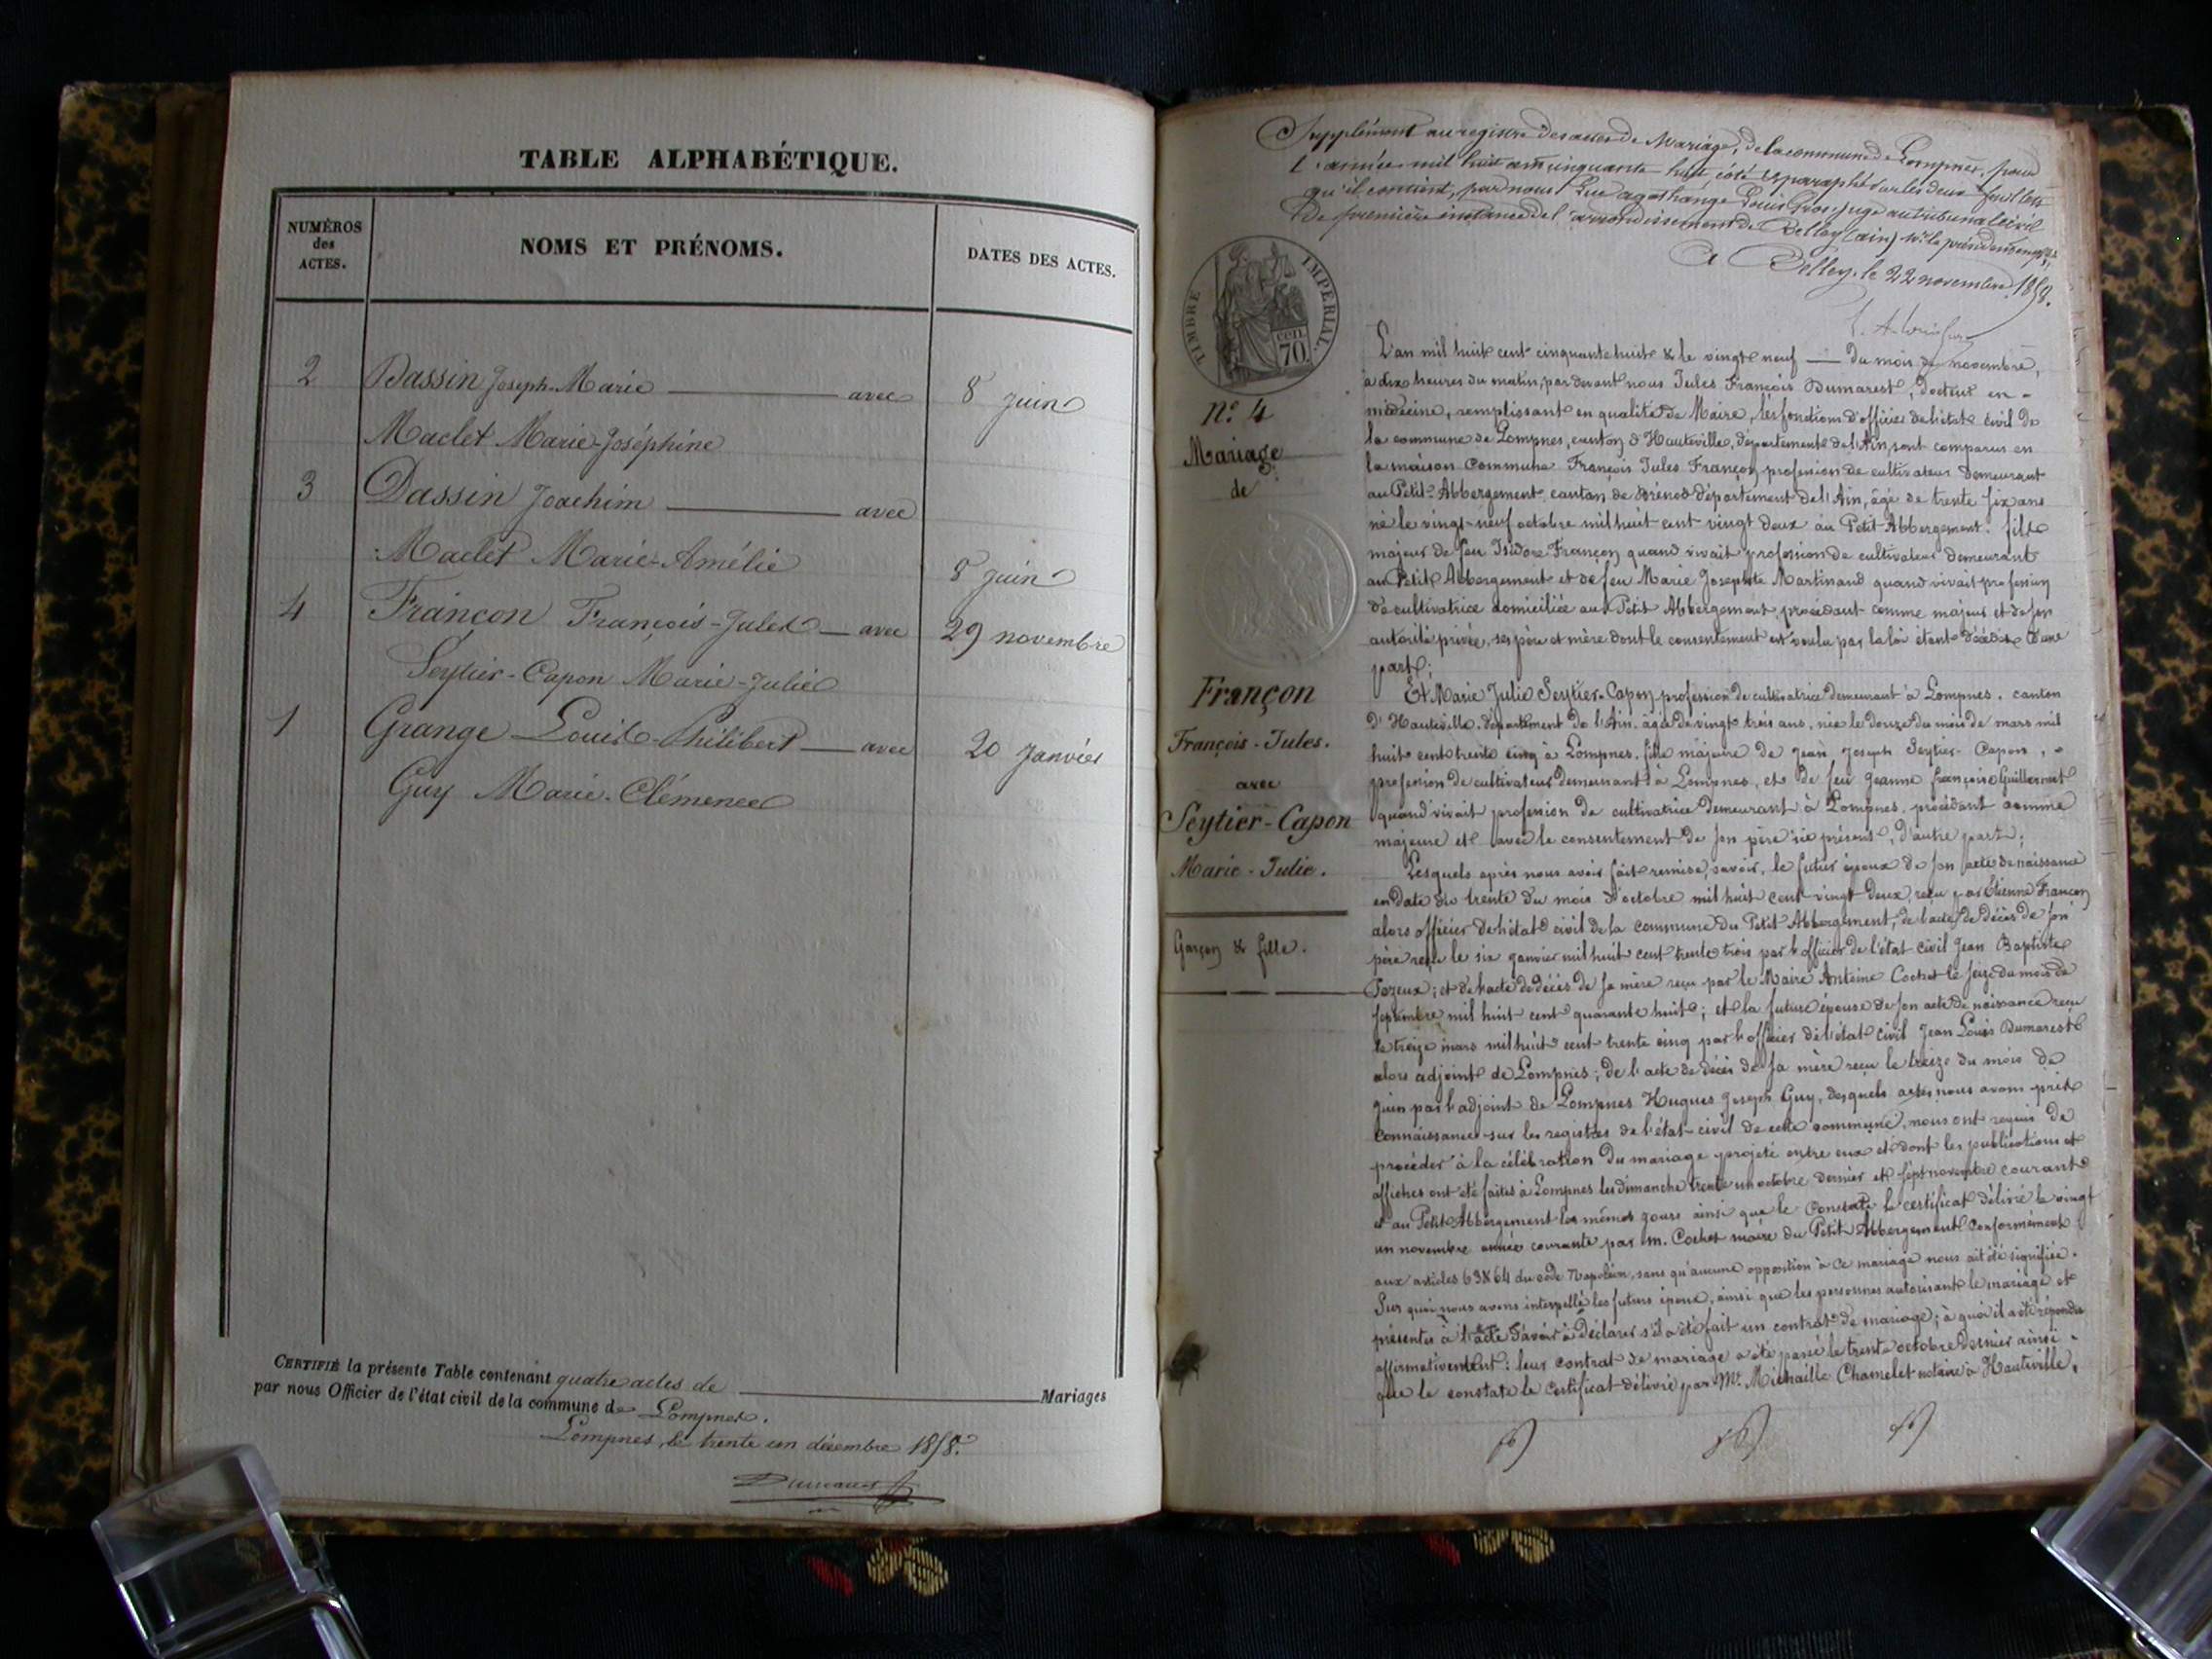 TABLE ALPHABÉTIQUE.
NUMÉROS
des
ACTES.
NOMS ET PRÉNOMS.
DATES DES ACTES.
2 Dassin Joseph-Marie avec 8 juin
Maclet Marie-Joséphine
3 Dassin Joachim avec
Maclet Marie-Amélie 8 juin
4 Françon François-Jules avec 29 novembre
Seytier-Capon Marie-Julie
1 Grange Louis-Philibert avec 20 Janvier
Guy Marie-Clémence
CERTIFIÉ la présente Table contenant quatre actes de Mariages
par nous Officier de l'état civil de la commune de Lompnes.
Lompnes, le trente un décembre 1858.
Dumarest
Supplément au registre des actes de Mariage, de la commune de Lompnes, pour
l'année mil huit cent cinquante huit, coté et paraphé sur les deux feuillets
qu'il contient, par nous Agathange Louis Gros juge au tribunal civil
de première instance de l'arrondissement de Belley (ain)
A Belley, le 22 novembre 1858.
TIMBRE IMPERIAL
70 cen.
N.º 4
Mariage
de
Françon
François-Jules.
avec
Seytier-Capon
Marie-Julie.
Garçon & fille.
L'an mil huit cent cinquante huit & le vingt neuf du mois de novembre,
à dix heures du matin, par devant nous Jules François Dumarest, Docteur en
médecine, remplissant en qualité de Maire, les fonctions d'officier de l'état civil de
la commune de Lompnes, canton d'Hauteville, département de l'Ain, sont comparus en
la maison Commune François Jules Françon profession de cultivateur demeurant
au Petit-Abbergement, canton de Brénod département de l'Ain, âgé de trente six ans
né le vingt-neuf octobre mil huit cent vingt deux au Petit Abbergement. fils
majeur de feu Isidore Françon quand vivait profession de cultivateur demeurant
au Petit Abbergement et de feu Marie Josephte Martinand quand vivait profession
de cultivatrice domiciliée au Petit Abbergement, procédant comme majeur et de son
autorité privée, ses père et mère dont le consentement est voulu par la loi étant décédés d'une
part;
Et Marie Julie Seytier-Capon profession de cultivatrice demeurant à Lompnes. canton
d'Hauteville, département de l'Ain. âgée de vingt trois ans, née le douze du mois de mars mil
huit cent trente cinq à Lompnes. fille majeure de Jean Joseph Seytier-Capon,
profession de cultivateur demeurant à Lompnes, et de feu Jeanne françoise Guillermet
quand vivait profession de cultivatrice demeurant à Lompnes, procédant comme
majeure et avec le consentement de son père ici présent, d'autre part;
Lesquels après nous avoir fait remise, savoir, le futur époux de son acte de naissance
en date du trente du mois d'octobre mil huit cent vingt deux, reçu par Etienne Françon
alors officier de l'état civil de la commune du Petit Abbergement, de l'acte de décès de son
père reçu le six janvier mil huit cent trente trois par l'officier de l'état civil Jean Baptiste
Jozeux; et de l'acte de décès de sa mère reçu par le Maire Antoine Cochet le seize du mois de
septembre mil huit cent quarante huit; et la future épouse de son acte de naissance reçu
le treize mars mil huit cent trente cinq par l'officier de l'état civil Jean Louis Dumarest
alors adjoint de Lompnes; de l'acte de décès de sa mère reçu le treize du mois de
juin par l'adjoint de Lompnes Hugues Joseph Guy, desquels actes nous avons pris
connaissance sur les registres de l'état-civil de cette commune, nous ont requis de
procéder à la célébration du mariage projeté entre eux et dont les publications et
affiches ont été faites à Lompnes les dimanche trente un octobre dernier et sept novembre courant
et au Petit Abbergement les mêmes jours ainsi que le constate le certificat délivré le vingt
un novembre année courante par m. Cochet maire du Petit Abbergement conformément
aux articles 63 & 64 du code Napoléon, sans qu'aucune opposition à ce mariage nous ait été signifiée.
Sur quoi nous avons interpellé les futurs époux, ainsi que les personnes autorisant le mariage et
présentes à l'acte d'avoir à déclarer s'il a été fait un contrat de mariage; à quoi il a été répondu
affirmativement: leur contrat de mariage a été passé le trente octobre dernier ainsi
que le constate le certificat délivré par Mr. Michaille Chamelet notaire à Hauteville,